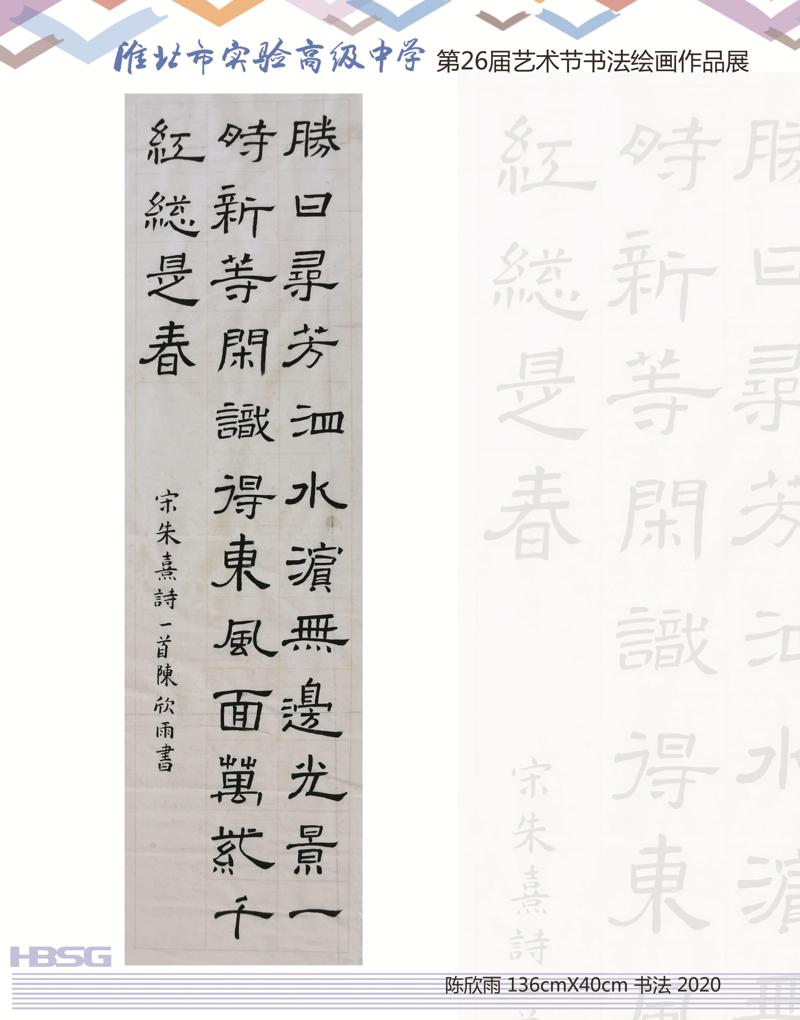 淮北市实验高级中学 第26届艺术节书法绘画作品展
勝日尋芳泗水濱無邊光景一
時新等閑識得東風面萬紫千
紅総是春
宋朱熹詩一首陳欣雨書
HBSG
陈欣雨 136cmX40cm 书法 2020